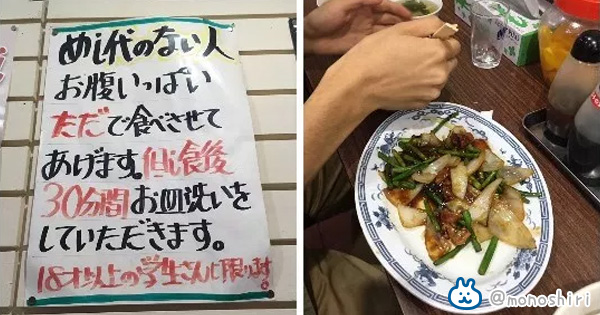 めし代のない人
お腹いっぱい
ただで食べさせて
あげます。但し食後
30分間お皿洗いを
していただきます。
18才以上の学生さんに限ります。
@monoshiri